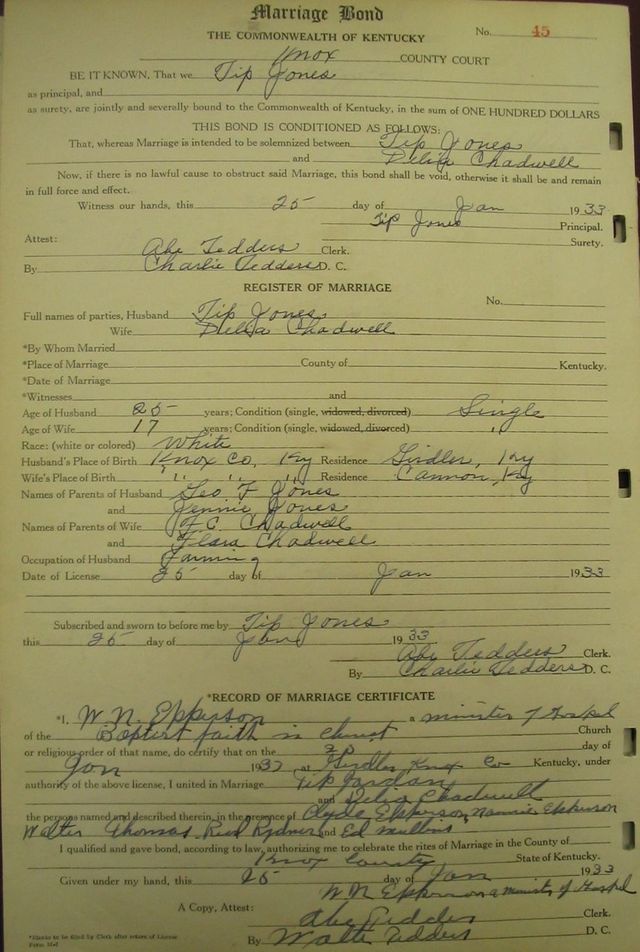 Marriage Bond
THE COMMONWEALTH OF KENTUCKY No. 45
Knox COUNTY COURT
BE IT KNOWN, That we Tip Jones
as principal, and
as surety, are jointly and severally bound to the Commonwealth of Kentucky, in the sum of ONE HUNDRED DOLLARS
THIS BOND IS CONDITIONED AS FOLLOWS:
That, whereas Marriage is intended to be solemnized between Tip Jones
and Delia Chadwell
Now, if there is no lawful cause to obstruct said Marriage, this bond shall be void, otherwise it shall be and remain
in full force and effect.
Witness our hands, this 25 day of Jan 1933
Tip Jones Principal.
Attest: Surety.
Abe Tedders Clerk.
By Charlie Tedders D. C.
REGISTER OF MARRIAGE
No.
Full names of parties, Husband Tip Jones
Wife Delia Chadwell
*By Whom Married
*Place of Marriage County of Kentucky.
*Date of Marriage
*Witnesses and
Age of Husband 25 years; Condition (single, widowed, divorced) Single
Age of Wife 17 years; Condition (single, widowed, divorced) "
Race: (white or colored) White
Husband's Place of Birth Knox Co, Ky Residence Girdler, Ky
Wife's Place of Birth " " " Residence Cannon, Ky
Names of Parents of Husband Geo F Jones
and Jennie Jones
Names of Parents of Wife F.C. Chadwell
and Flara Chadwell
Occupation of Husband Farming
Date of License 25 day of Jan 1933
Subscribed and sworn to before me by Tip Jones
this 25 day of Jan 1933
Abe Tedders Clerk.
By Charlie Tedders D. C.
*RECORD OF MARRIAGE CERTIFICATE
*I, W.N. Epperson a minister of Gospel
of the Baptist faith in Christ Church
or religious order of that name, do certify that on the day of
Jan 193 , at Girdler Knox Co Kentucky, under
authority of the above license, I united in Marriage Tip Jordan
and Delia Chadwell
the persons named and described therein, in the presence of Clyde Epperson, Nannie Epperson
Walter Thomas, and Ed Mullins
I qualified and gave bond, according to law, authorizing me to celebrate the rites of Marriage in the County of
Knox County State of Kentucky.
Given under my hand, this 25 day of Jan 1933
W N Epperson a minister of Gospel
A Copy, Attest: Abe Tedders
By Tedders D. C.
*Blanks to be filled by Clerk after return of License